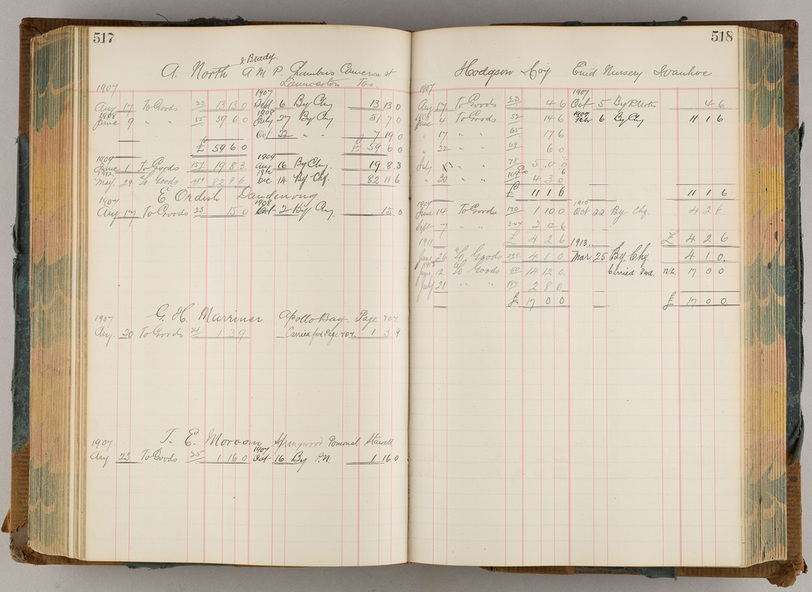 517
& Brady
A. North A.M.P. Chambers Cameron st
Launceston Tas
1907 1907
Aug 17 To Goods 22 13 13 0 Sept 6 By Chq 13 13 0
1908 1908
June 9 " " 59 6 0 July 27 By Chq 51 7 0
Oct 22 " " 7 19 0
£ 59 6 0 £ 59 6 0
1909 1909
June 1 To Goods 157 19 8 3 Aug 16 By Chq 19 8 3
1912 1912
May 29 To Goods Dec 14 By Chq. 82 11 6
E. Ordish Dandenong
1907 1908
Aug 17 To Goods 23 15 0 Oct 2 By Chq 15 0
1907 G. H. Marriner Apollo Bay Page 707
Aug. 20 To Goods 24 1 3 9 Carried for'd Pg. 707 1 3 9
1907 T. E. Morcom Springwood Pomonal Stawell
1907
Aug 23 To Goods 25 1 16 0 Oct 16 By P.N. 1 16 0
518
Hodgson & Coy Enid Nursery Ivanhoe
1907 1907
Aug 17 To Goods 22 4 6 Oct 5 By P Notes 4 6
1908 1908
June 4 To Goods 52 14 6 Feby 6 By Chq 11 1 6
" 17 " " 65 17 6
" 22 " " 68 6 0
July " " 73 5 0 0
" 20 " " 4 3 0
£ 11 1 6 11 1 6
1909 1910
June 14 To Goods 1 10 0 Oct 22 By Chq. 4 2 6
Sept 7 " " 2 12 6
£ 4 2 6 £ 4 2 6
1911 1913
June 26 To Goods 4 1 0 Mar 25 By Chq. 4 1 0
June 12 To Goods 14 12 0 Carried Fwd. 17 0 0
July 21 " " 2 8 0
£ 17 0 0 £ 17 0 0